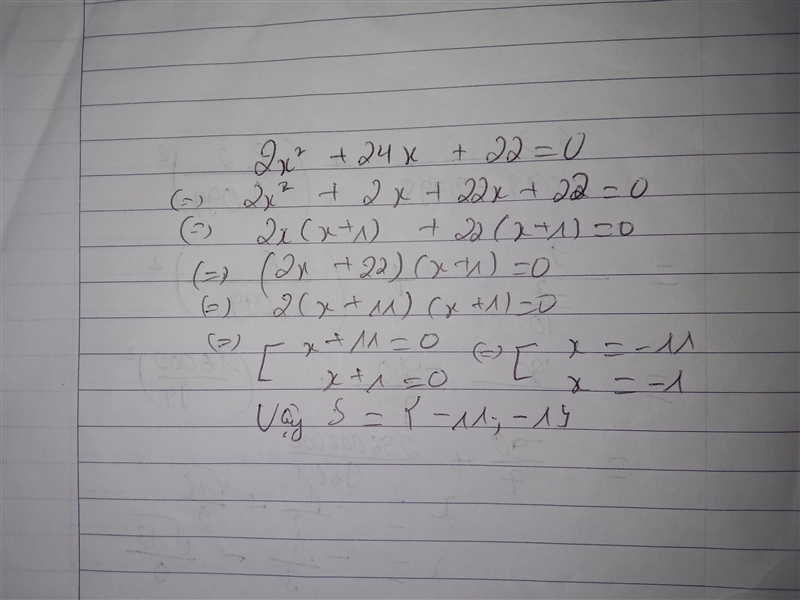 2x² + 24x + 22 = 0
(=) 2x² + 2x + 22x + 22 = 0
(=) 2x(x+1) + 22(x+1) = 0
(=) (2x + 22)(x+1) = 0
(=) 2(x + 11)(x+1) = 0
(=) [ x + 11 = 0 (=) [ x = -11
x + 1 = 0 x = -1
Vậy S = { -11; -1}